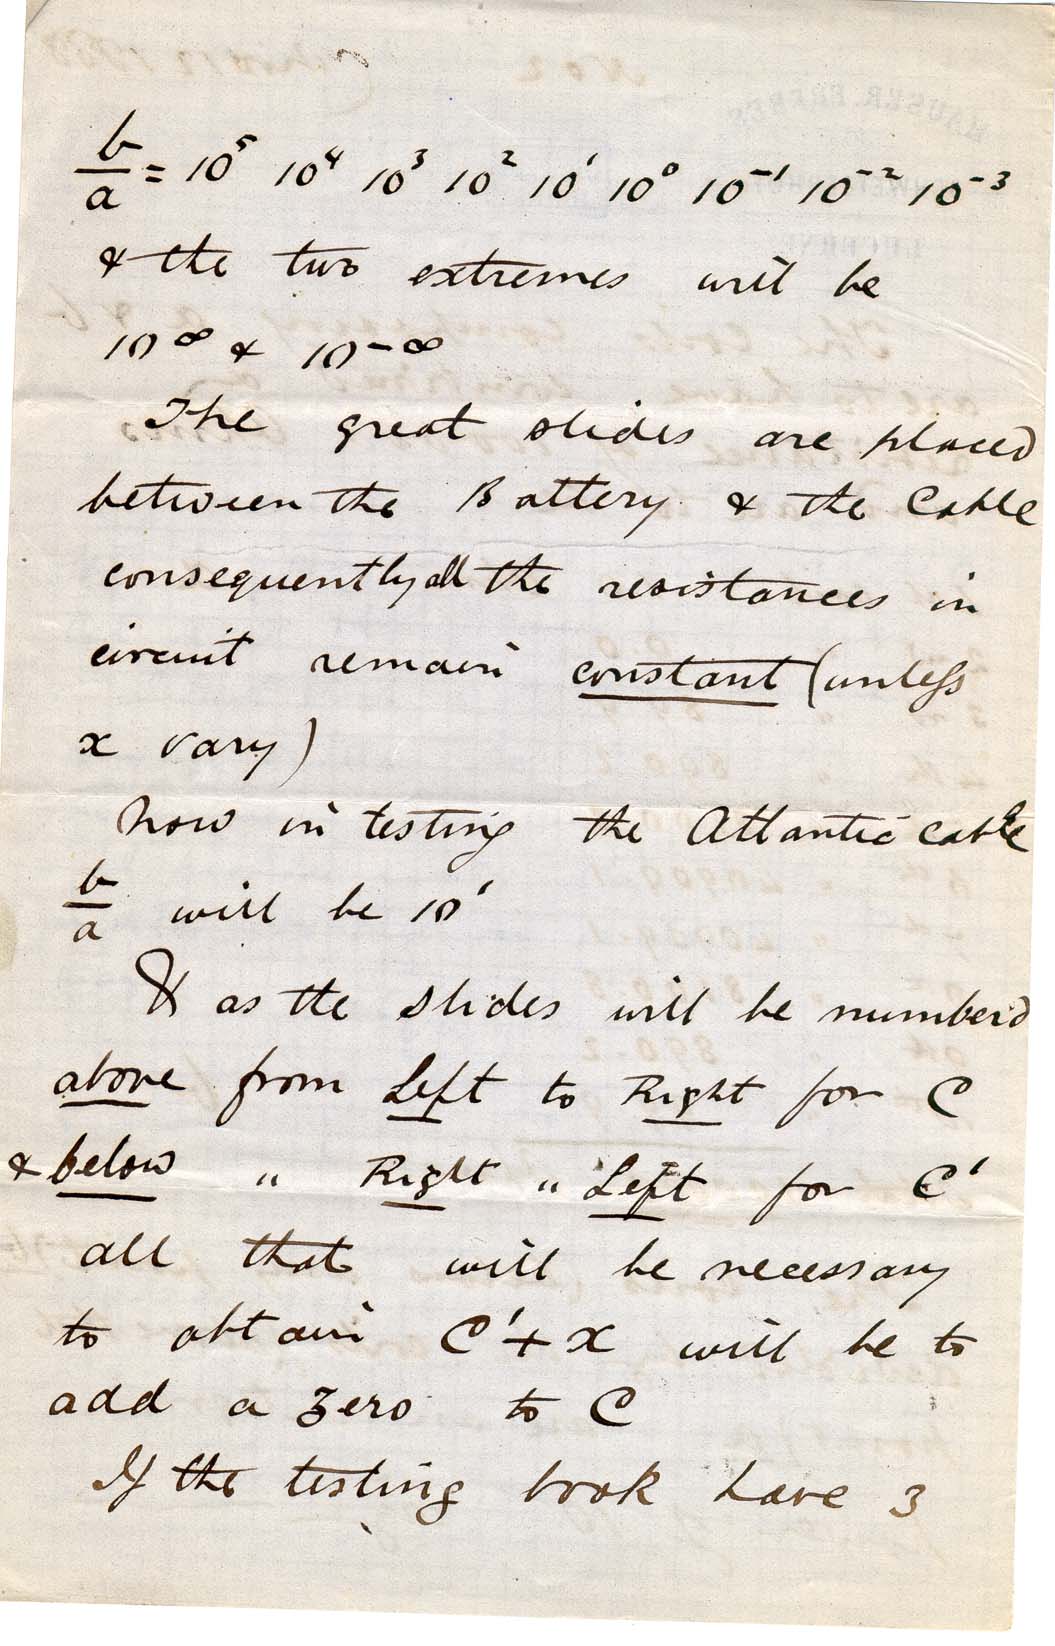 b/a = 10⁵ 10⁴ 10³ 10² 10¹ 10⁰ 10⁻¹ 10⁻² 10⁻³
& the two extremes will be
10^∞ & 10^-∞
The great slides are placed
between the Battery & the Cable
consequently all the resistances in
circuit remain constant (unless
x vary)
Now in testing the Atlantic cable
b/a will be 10¹
& as the slides will be numberd
above from Left to Right for C
& below " Right " Left for C'
all that will be necessary
to obtain C' + x will be to
add a zero to C
If the testing book have 3